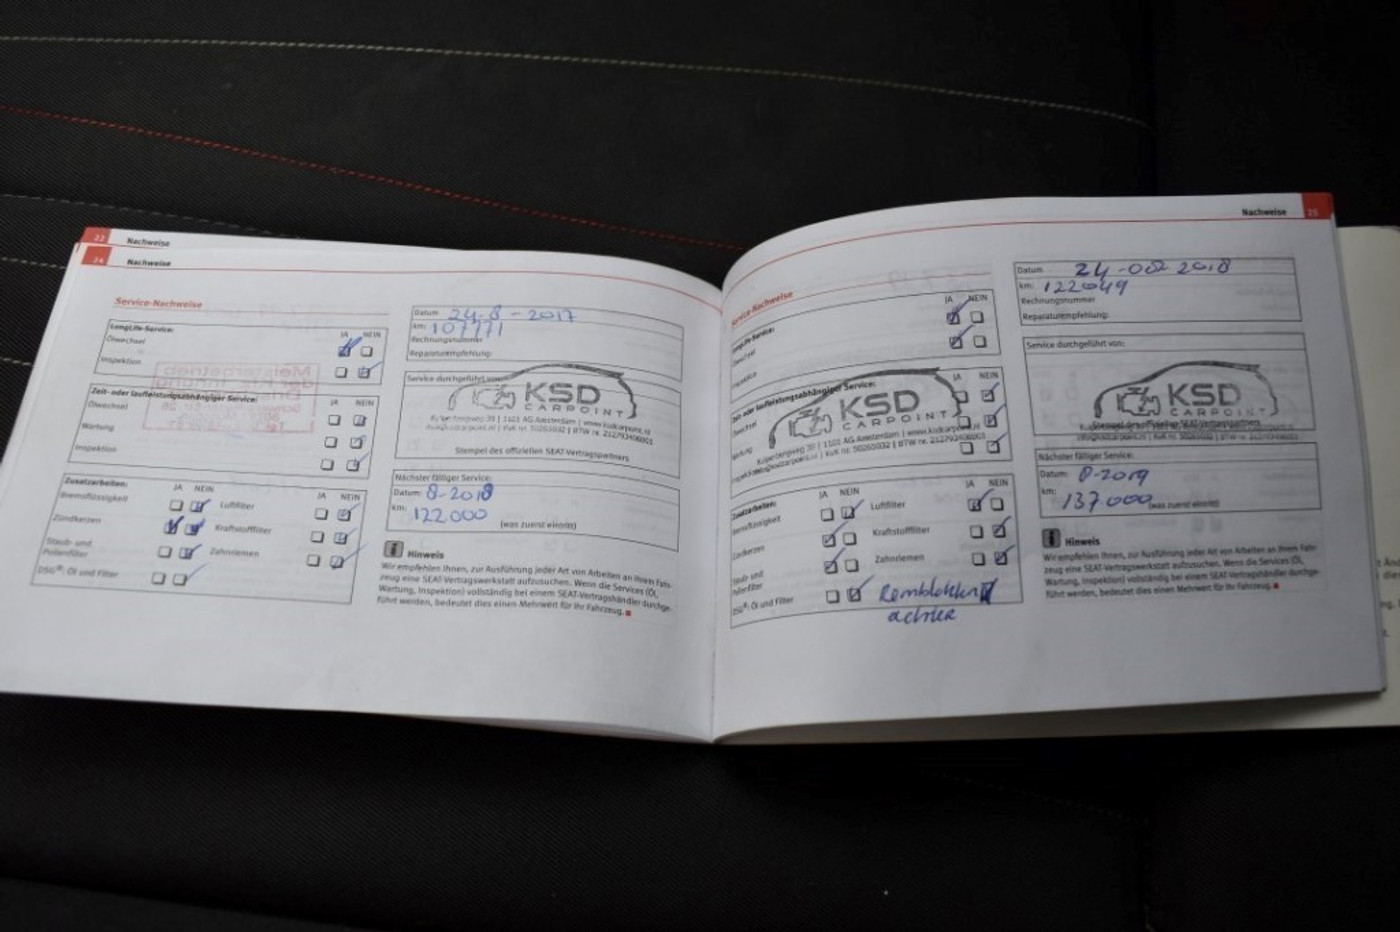 22 Nachweise
24 Nachweise
Service-Nachweise
LongLife-Service:
JA NEIN
Ölwechsel
Inspektion
Zeit- oder laufleistungsabhängiger Service:
Ölwechsel
Wartung
Inspektion
Zusatzarbeiten:
JA NEIN
JA NEIN
Bremsflüssigkeit
Luftfilter
Zündkerzen
Kraftstofffilter
Staub- und
Pollenfilter
Zahnriemen
DSG®: Öl und Filter
Datum 24-8-2017
km: 107771
Rechnungsnummer
Reparaturempfehlung:
Service durchgeführt von:
KSD
CARPOINT
Kuiperbergweg 30 | 1101 AG Amsterdam | www.ksdcarpoint.nl
info@ksdcarpoint.nl | KvK nr. 50265032 | BTW nr. 212793406B01
Stempel des offiziellen SEAT-Vertragspartners
Nächster fälliger Service:
Datum: 8-2018
km: 122000
(was zuerst eintritt)
Hinweis
Wir empfehlen Ihnen, zur Ausführung jeder Art von Arbeiten an Ihrem Fahr-
zeug eine SEAT-Vertragswerkstatt aufzusuchen. Wenn die Services (Öl,
Wartung, Inspektion) vollständig bei einem SEAT-Vertragshändler durchge-
führt werden, bedeutet dies einen Mehrwert für Ihr Fahrzeug.
Nachweise 25
Service-Nachweise
LongLife-Service:
JA NEIN
Ölwechsel
Inspektion
Zeit- oder laufleistungsabhängiger Service:
JA NEIN
Ölwechsel
Wartung
Inspektion
KSD
CARPOINT
Kuiperbergweg 30 | 1101 AG Amsterdam | www.ksdcarpoint.nl
info@ksdcarpoint.nl | KvK nr. 50265032 | BTW nr. 212793406B01
Zusatzarbeiten:
JA NEIN
JA NEIN
Bremsflüssigkeit
Luftfilter
Zündkerzen
Kraftstofffilter
Staub- und
Pollenfilter
Zahnriemen
DSG®: Öl und Filter
Remblokken
achter
Datum 24-08-2018
km: 122049
Rechnungsnummer
Reparaturempfehlung:
Service durchgeführt von:
KSD
CARPOINT
Stempel des offiziellen SEAT-Vertragspartners
Nächster fälliger Service:
Datum: 8-2019
km: 137.000
(was zuerst eintritt)
Hinweis
Wir empfehlen Ihnen, zur Ausführung jeder Art von Arbeiten an Ihrem Fahr-
zeug eine SEAT-Vertragswerkstatt aufzusuchen. Wenn die Services (Öl,
Wartung, Inspektion) vollständig bei einem SEAT-Vertragshändler durchge-
führt werden, bedeutet dies einen Mehrwert für Ihr Fahrzeug.